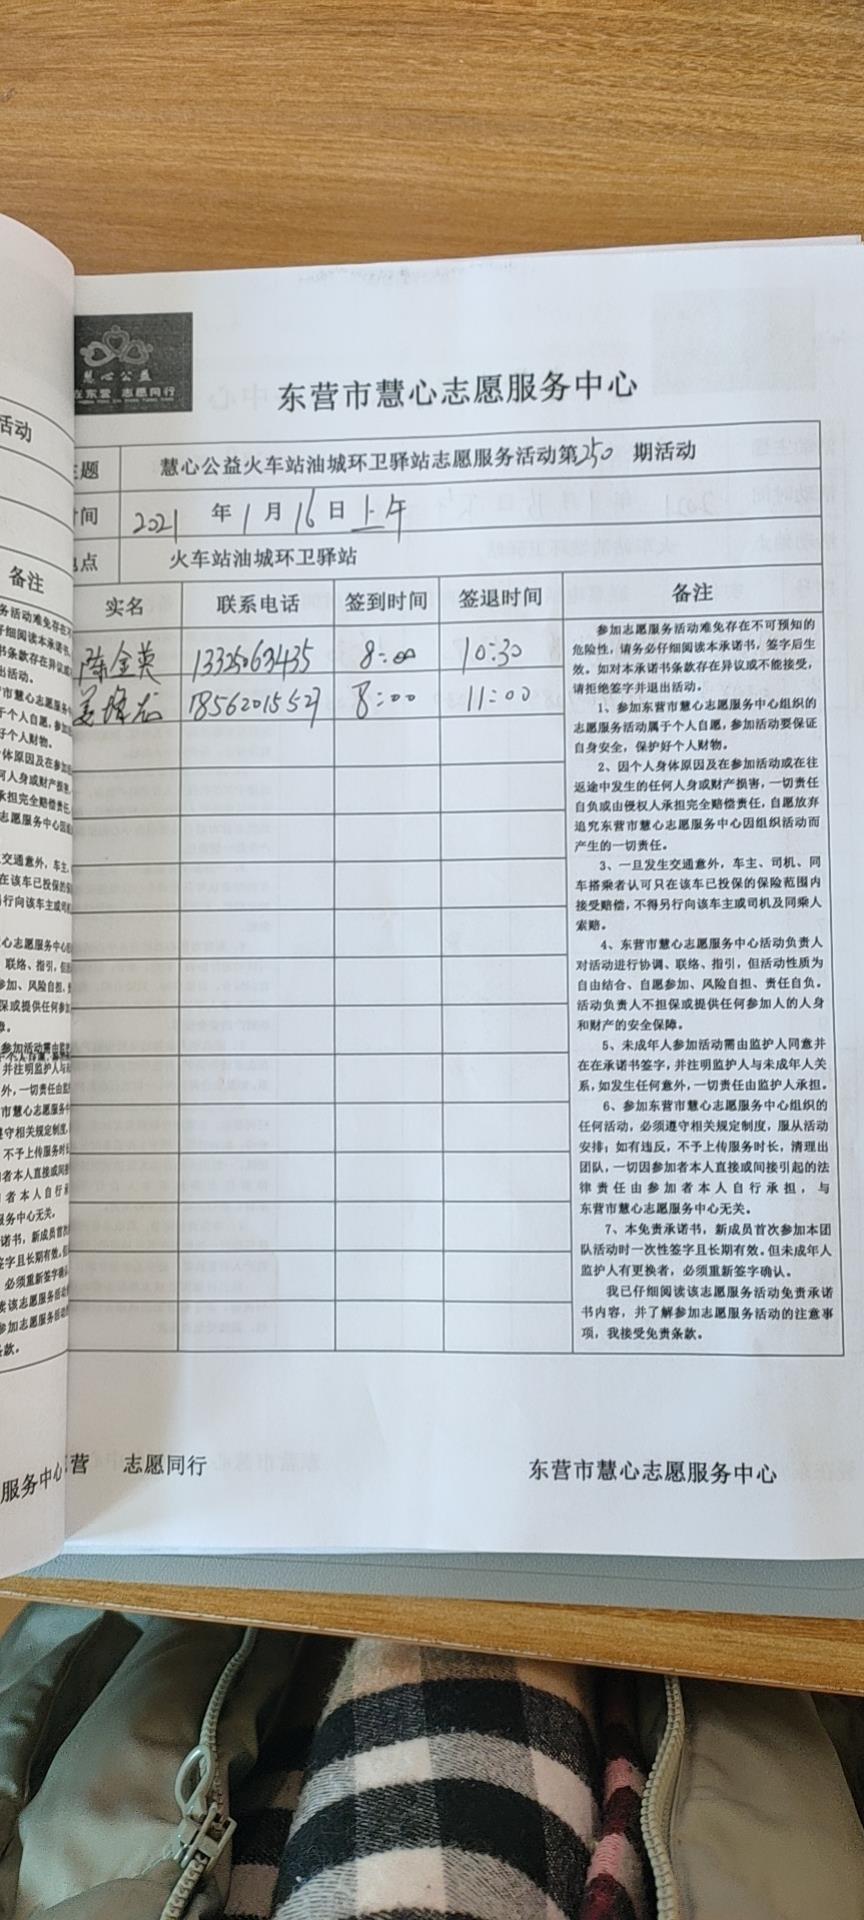 慧心公益
在东营 志愿同行
东营市慧心志愿服务中心
主题 慧心公益火车站油城环卫驿站志愿服务活动第250 期活动
时间 2021 年 1 月 16 日 上午
地点 火车站油城环卫驿站
实名 联系电话 签到时间 签退时间 备注
陈金英 13325063435 8:00 10:30
姜 18562015527 8:00 11:00
参加志愿服务活动难免存在不可预知的
危险性，请务必仔细阅读本承诺书，签字后生
效。如对本承诺书条款存在异议或不能接受，
请拒绝签字并退出活动。
1、参加东营市慧心志愿服务中心组织的
志愿服务活动属于个人自愿，参加活动要保证
自身安全，保护好个人财物。
2、因个人身体原因及在参加活动或在往
返途中发生的任何人身或财产损害，一切责任
自负或由侵权人承担完全赔偿责任，自愿放弃
追究东营市慧心志愿服务中心因组织活动而
产生的一切责任。
3、一旦发生交通意外，车主、司机、同
车搭乘者认可只在该车已投保的保险范围内
接受赔偿，不得另行向该车主或司机及同乘人
索赔。
4、东营市慧心志愿服务中心活动负责人
对活动进行协调、联络、指引，但活动性质为
自由结合、自愿参加、风险自担、责任自负。
活动负责人不担保或提供任何参加人的人身
和财产的安全保障。
5、未成年人参加活动需由监护人同意并
在在承诺书签字，并注明监护人与未成年人关
系，如发生任何意外，一切责任由监护人承担。
6、参加东营市慧心志愿服务中心组织的
任何活动，必须遵守相关规定制度，服从活动
安排；如有违反，不予上传服务时长，清理出
团队，一切因参加者本人直接或间接引起的法
律责任由参加者本人自行承担，与
东营市慧心志愿服务中心无关。
7、本免责承诺书，新成员首次参加本团
队活动时一次性签字且长期有效。但未成年人
监护人有更换者，必须重新签字确认。
我已仔细阅读该志愿服务活动免责承诺
书内容，并了解参加志愿服务活动的注意事
项，我接受免责条款。
营 志愿同行
东营市慧心志愿服务中心
活动
备注
服务中心